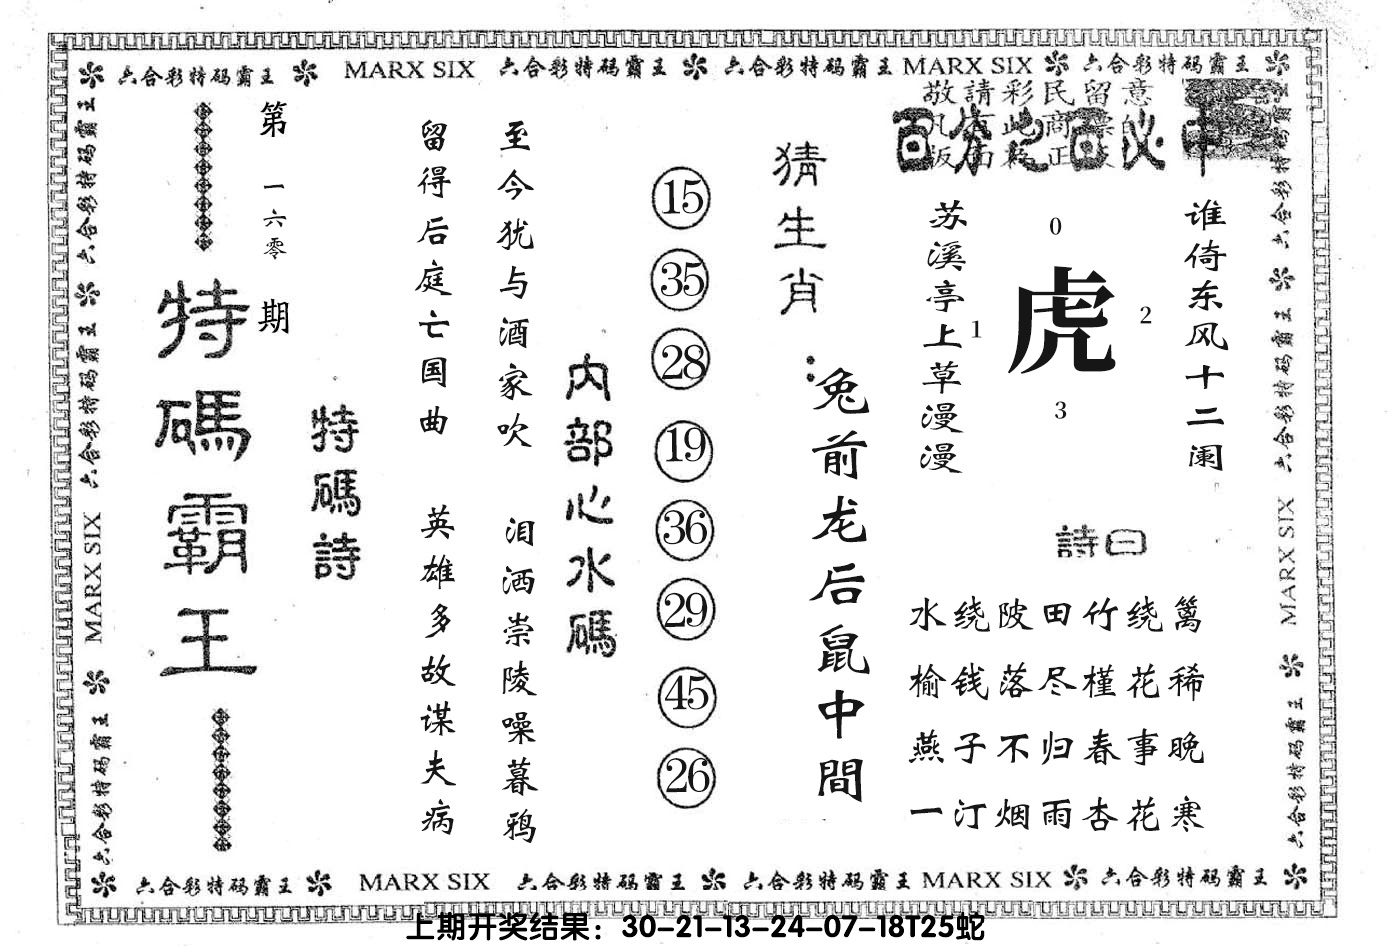 六合彩特码霸王 MARX SIX 六合彩特码霸王 六合彩特码霸王 MARX SIX 六合彩特码霸王
敬請彩民留意
百分之百必中
谁倚东风十二阑
0
虎
1
2
3
苏溪亭上草漫漫
詩曰
水绕陂田竹绕篱
榆钱落尽槿花稀
燕子不归春事晚
一汀烟雨杏花寒
猜生肖：
兔前龙后鼠中間
15
35
28
19
36
29
45
26
内部心水碼
至今犹与酒家吹
泪洒崇陵噪暮鸦
留得后庭亡国曲
英雄多故谋夫病
特碼詩
第一六零期
特碼霸王
六合彩特码霸王 六合彩特码霸王 MARX SIX 六合彩特码霸王
六合彩特码霸王 六合彩特码霸王 MARX SIX 六合彩特码霸王
六合彩特码霸王 MARX SIX 六合彩特码霸王 六合彩特码霸王 MARX SIX 六合彩特码霸王
上期开奖结果：30-21-13-24-07-18T25蛇